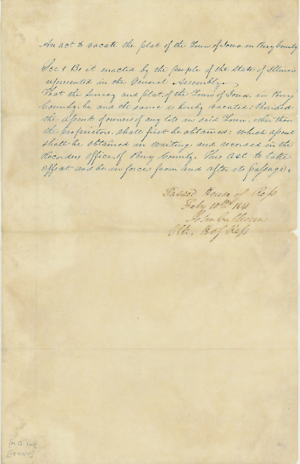 An act to vacate the plat of the Town of Iowa in Perry County
Sec 1 Be it enacted by the people of the State of Illinois
represented in the General Assembly.
That the Survey and plat, of the Town of Iowa, in Perry
County, be and the same is hereby vacated: Provided
the Assent of owners of any lots in said Town, other than
the proprietors, shall first be obtained: which assent
shall be obtained in writing, and recorded in the
Recorders office of Perry County. This Act to take
effect and be in force from and after its passage.
Passed House of Reps
Feby 10th 1841
John Calhoun
Clk. H of Reps